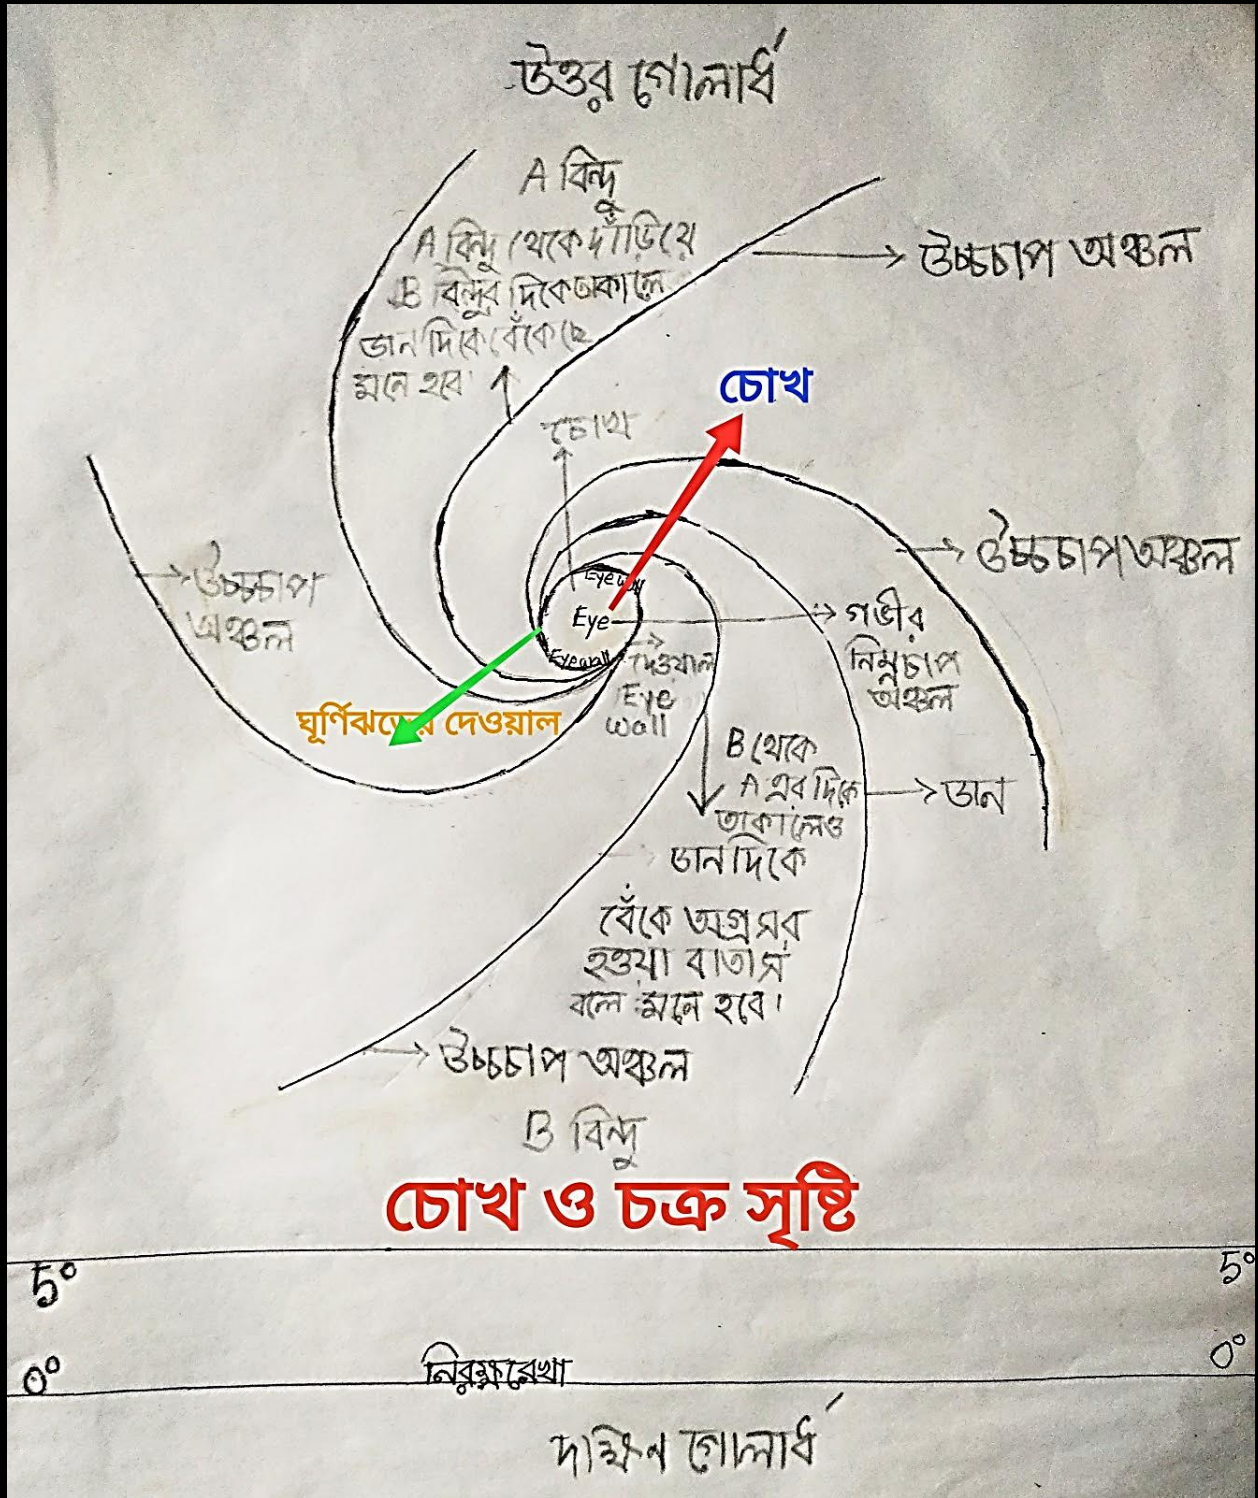 উত্তর গোলার্ধ
A বিন্দু
A বিন্দু থেকে দাঁড়িয়ে
B বিন্দুর দিকে তাকালে
ডান দিকে বেঁকেছে
মনে হবে
উচ্চচাপ অঞ্চল
চোখ
চোখ
উচ্চচাপ অঞ্চল
উচ্চচাপ
অঞ্চল
Eye wall
Eye
Eyewall
গভীর
নিম্নচাপ
অঞ্চল
দেওয়াল
Eye
wall
ঘূর্ণিঝড়ের দেওয়াল
B থেকে
A এর দিকে
তাকালেও
ডান
ডানদিকে
বেঁকে অগ্রসর
হওয়া বাতাস
বলে মনে হবে।
উচ্চচাপ অঞ্চল
B বিন্দু
চোখ ও চক্র সৃষ্টি
5°
5°
0°
0°
নিরক্ষরেখা
দক্ষিন গোলার্ধ